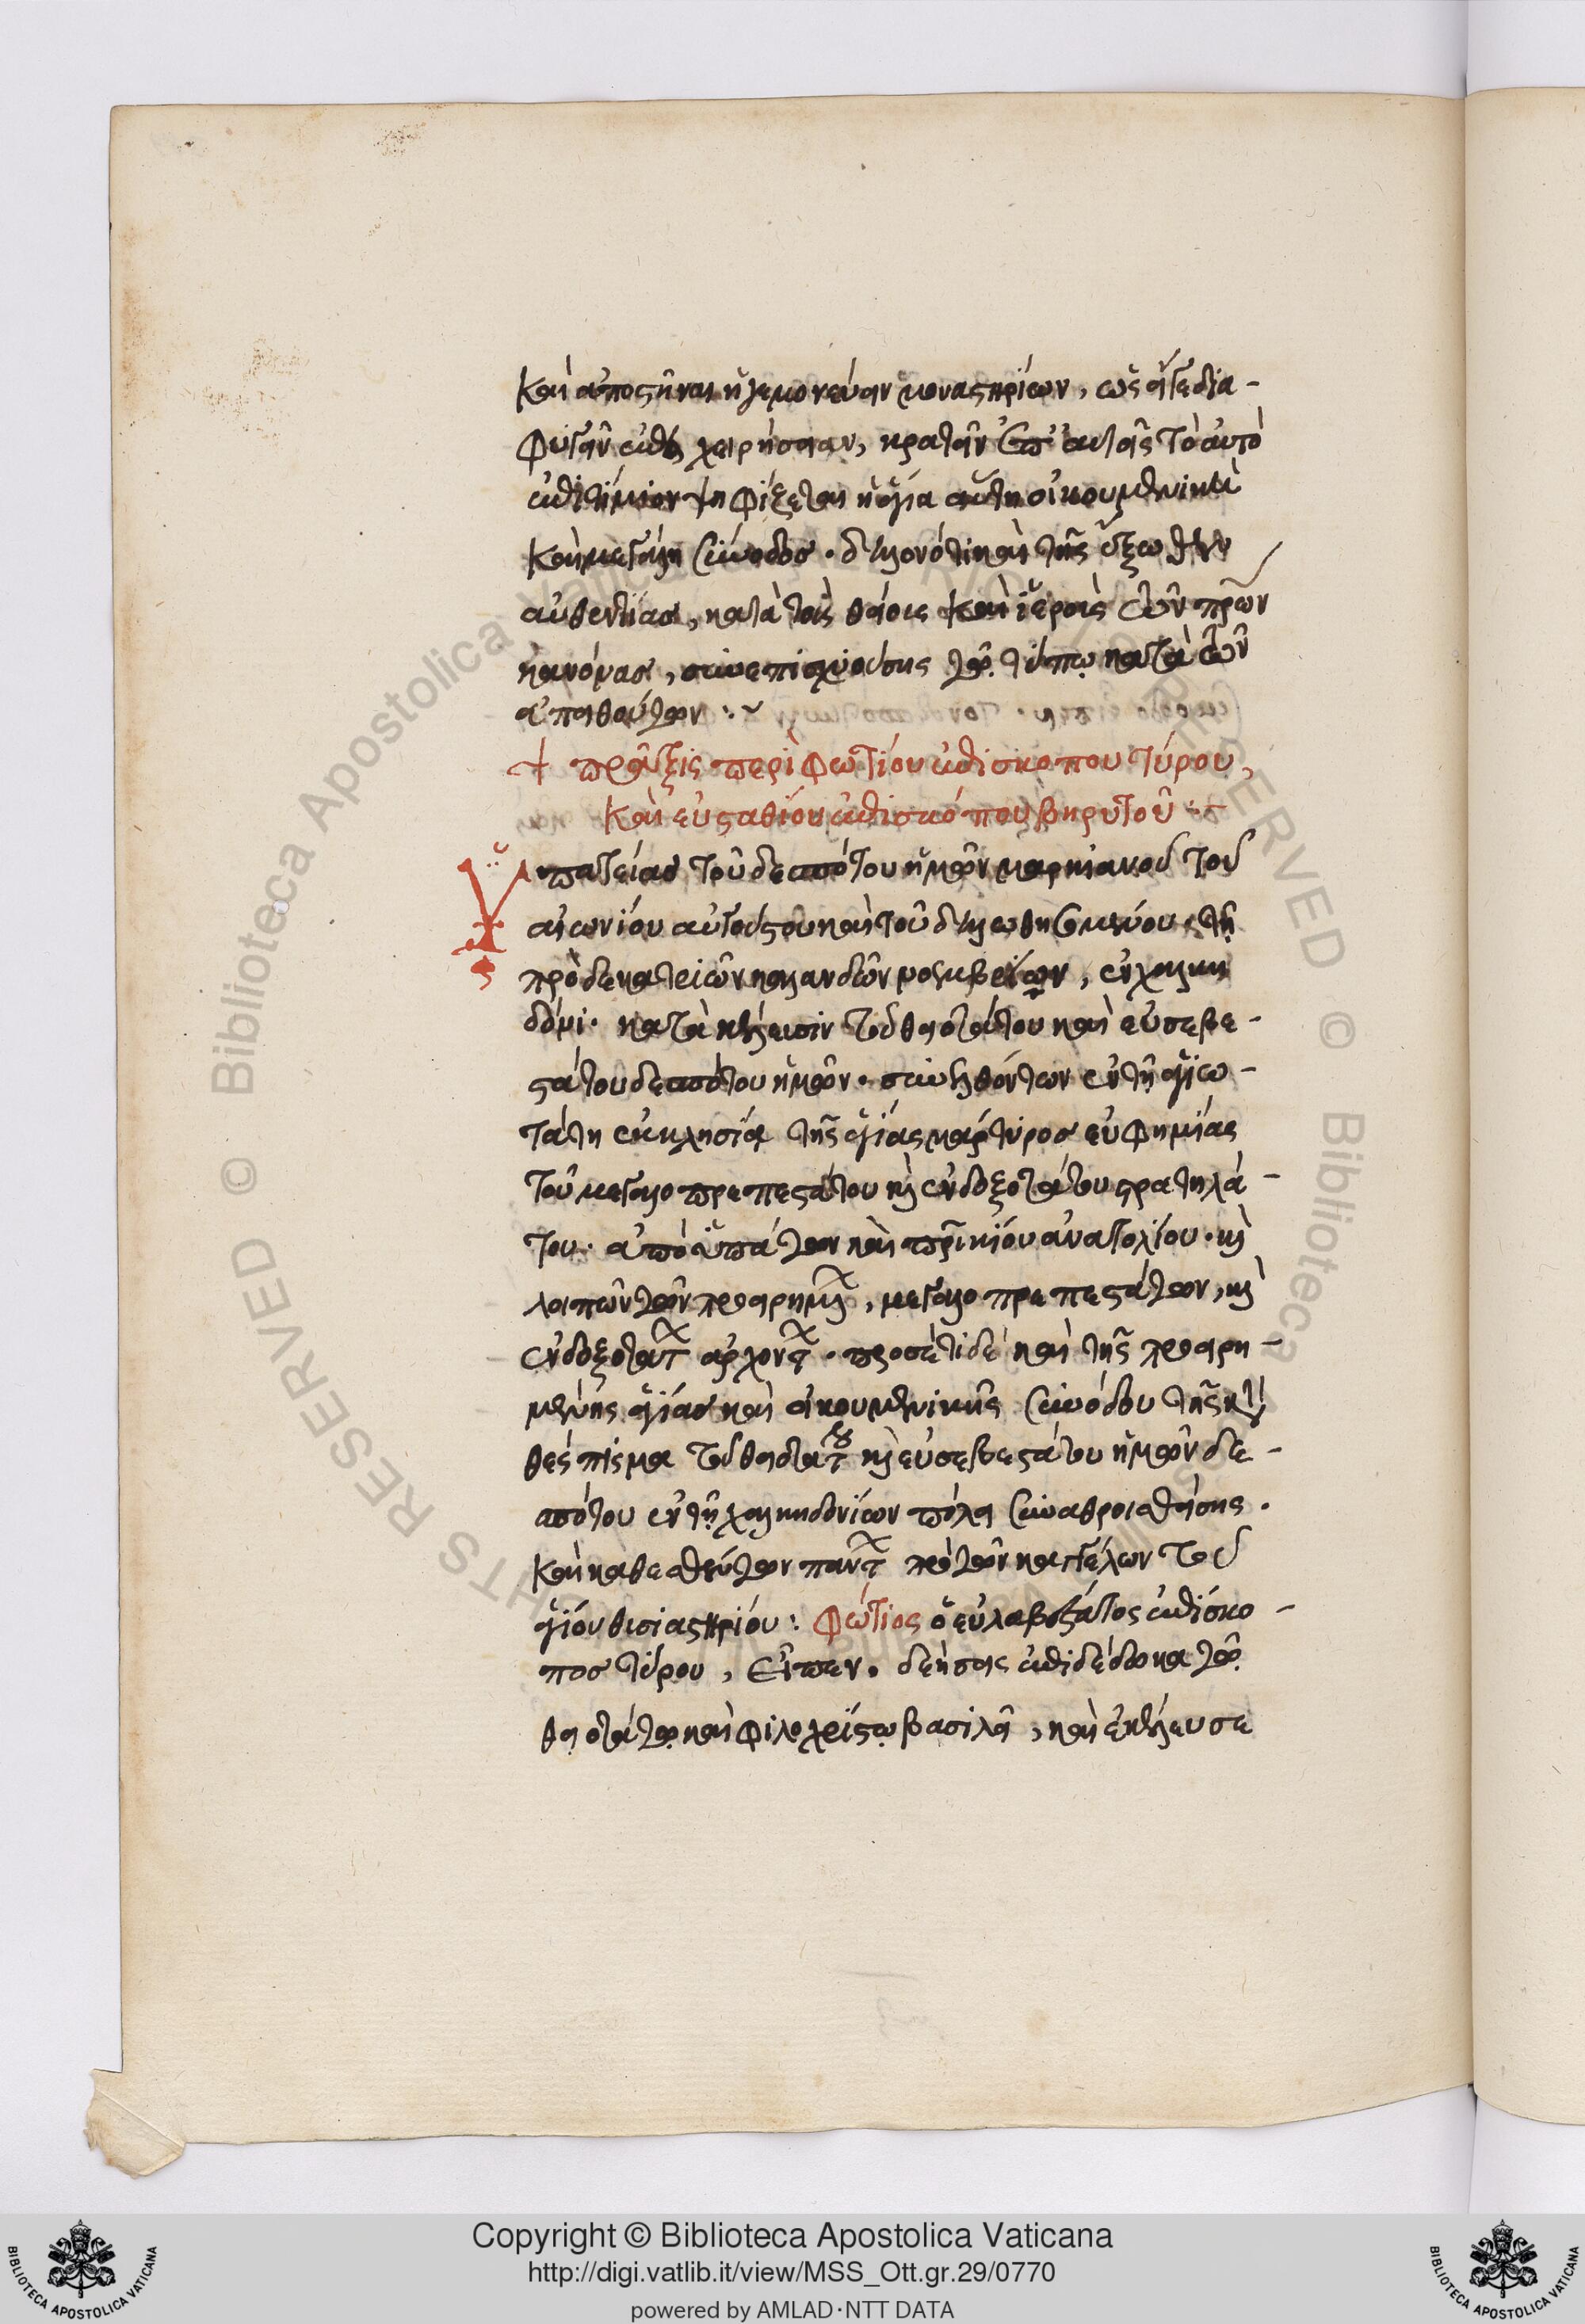 καὶ ἀποστῆναι ἡγεμονεύειν μοναστηρίων, ὡς εἴγε δια-
φυγεῖν ἐπιχειρήσειαν, κρατεῖν ἐπ' αὐτοῖς τὸ αὐτὸ
ἐπιτίμιον ψηφίζεται ἡ ἁγία αὕτη οἰκουμενικὴ
καὶ μεγάλη σύνοδος. δηλονότι καὶ τῆς ἔξωθεν
αὐθεντίας, κατὰ τοὺς θείους καὶ ἱεροὺς τῶν πρων
κανόνας, συνεπισχυούσης τῷ τύπῳ κατὰ τῶν
ἀπειθούντων :~
+ πρᾶξις περὶ φωτίου ἐπισκόπου τύρου,
καὶ εὐσταθίου ἐπισκόπου βηρυτοῦ :~
Ὑπατείας τοῦ δεσπότου ἡμῶν μαρκιανοῦ τοῦ
αἰωνίου αὐγούστου καὶ τοῦ δηλωθησομένου, τῇ
πρὸ δεκατριῶν καλανδῶν νοεμβρίων, ἐν χαλκη
δόνι. κατὰ κέλευσιν τοῦ θειοτάτου καὶ εὐσεβε-
στάτου δεσπότου ἡμῶν. συνελθόντων ἐν τῇ ἁγιω-
τάτη ἐκκλησίᾳ τῆς ἁγίας μάρτυρος εὐφημίας
τοῦ μεγαλοπρεπεστάτου κὶ ἐνδοξοτάτου στρατηλά-
του. ἀπὸ ὑπάτων καὶ πρικίου ἀνατολίου. κὶ
λοιπῶν τῶν προειρημέν, μεγαλοπρεπεστάτων, κὶ
ἐνδοξοτάτ ἀρχοντ. προσέτι δὲ καὶ τῆς προειρη-
μένης ἁγίας καὶ οἰκουμενικῆς συνόδου τῆς κατὰ
θέσπισμα τοῦ θειοτάτου κὶ εὐσεβεστάτου ἡμῶν δε-
σπότου ἐν τῇ χαλκηδονίων πόλει συναθροισθείσης.
καὶ καθεσθέντων πάντ πρὸ τῶν καγκέλων τοῦ
ἁγίου θυσιαστηρίου : Φώτιος ὁ εὐλαβέστατος ἐπίσκο-
πος τύρου, εἶπεν. δεήσεις ἐπιδέδωκα τῷ
θειοτάτῳ καὶ φιλοχρίστῳ βασιλεῖ, καὶ ἐκέλευσε
Copyright © Biblioteca Apostolica Vaticana
http://digi.vatlib.it/view/MSS_Ott.gr.29/0770
powered by AMLAD·NTT DATA